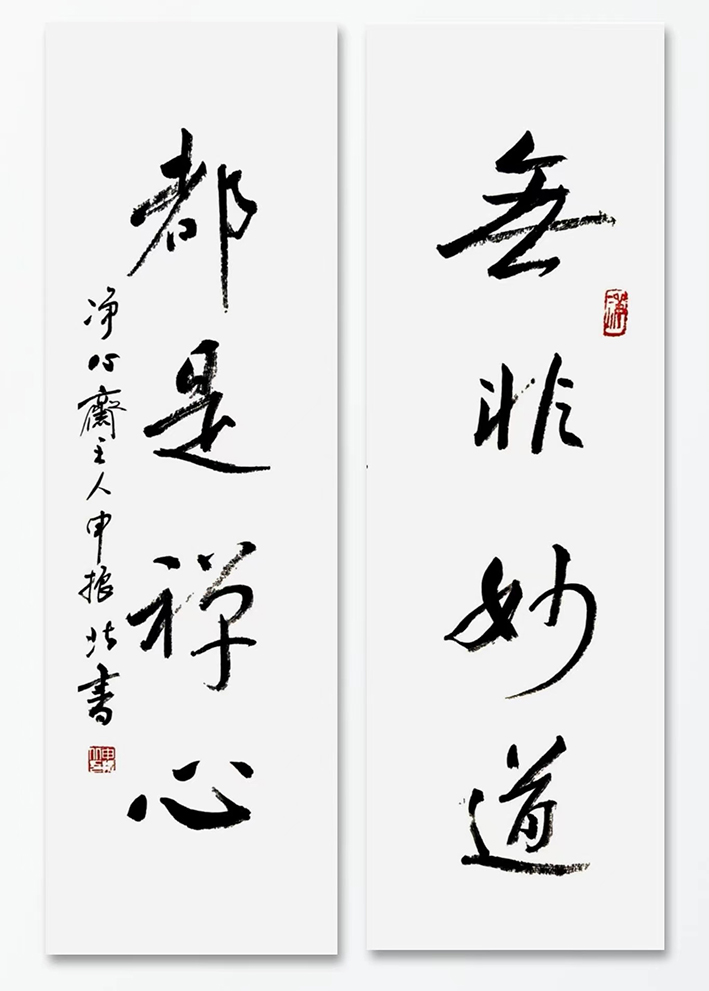 無非妙道
都是禅心
净心齋主人申振北书